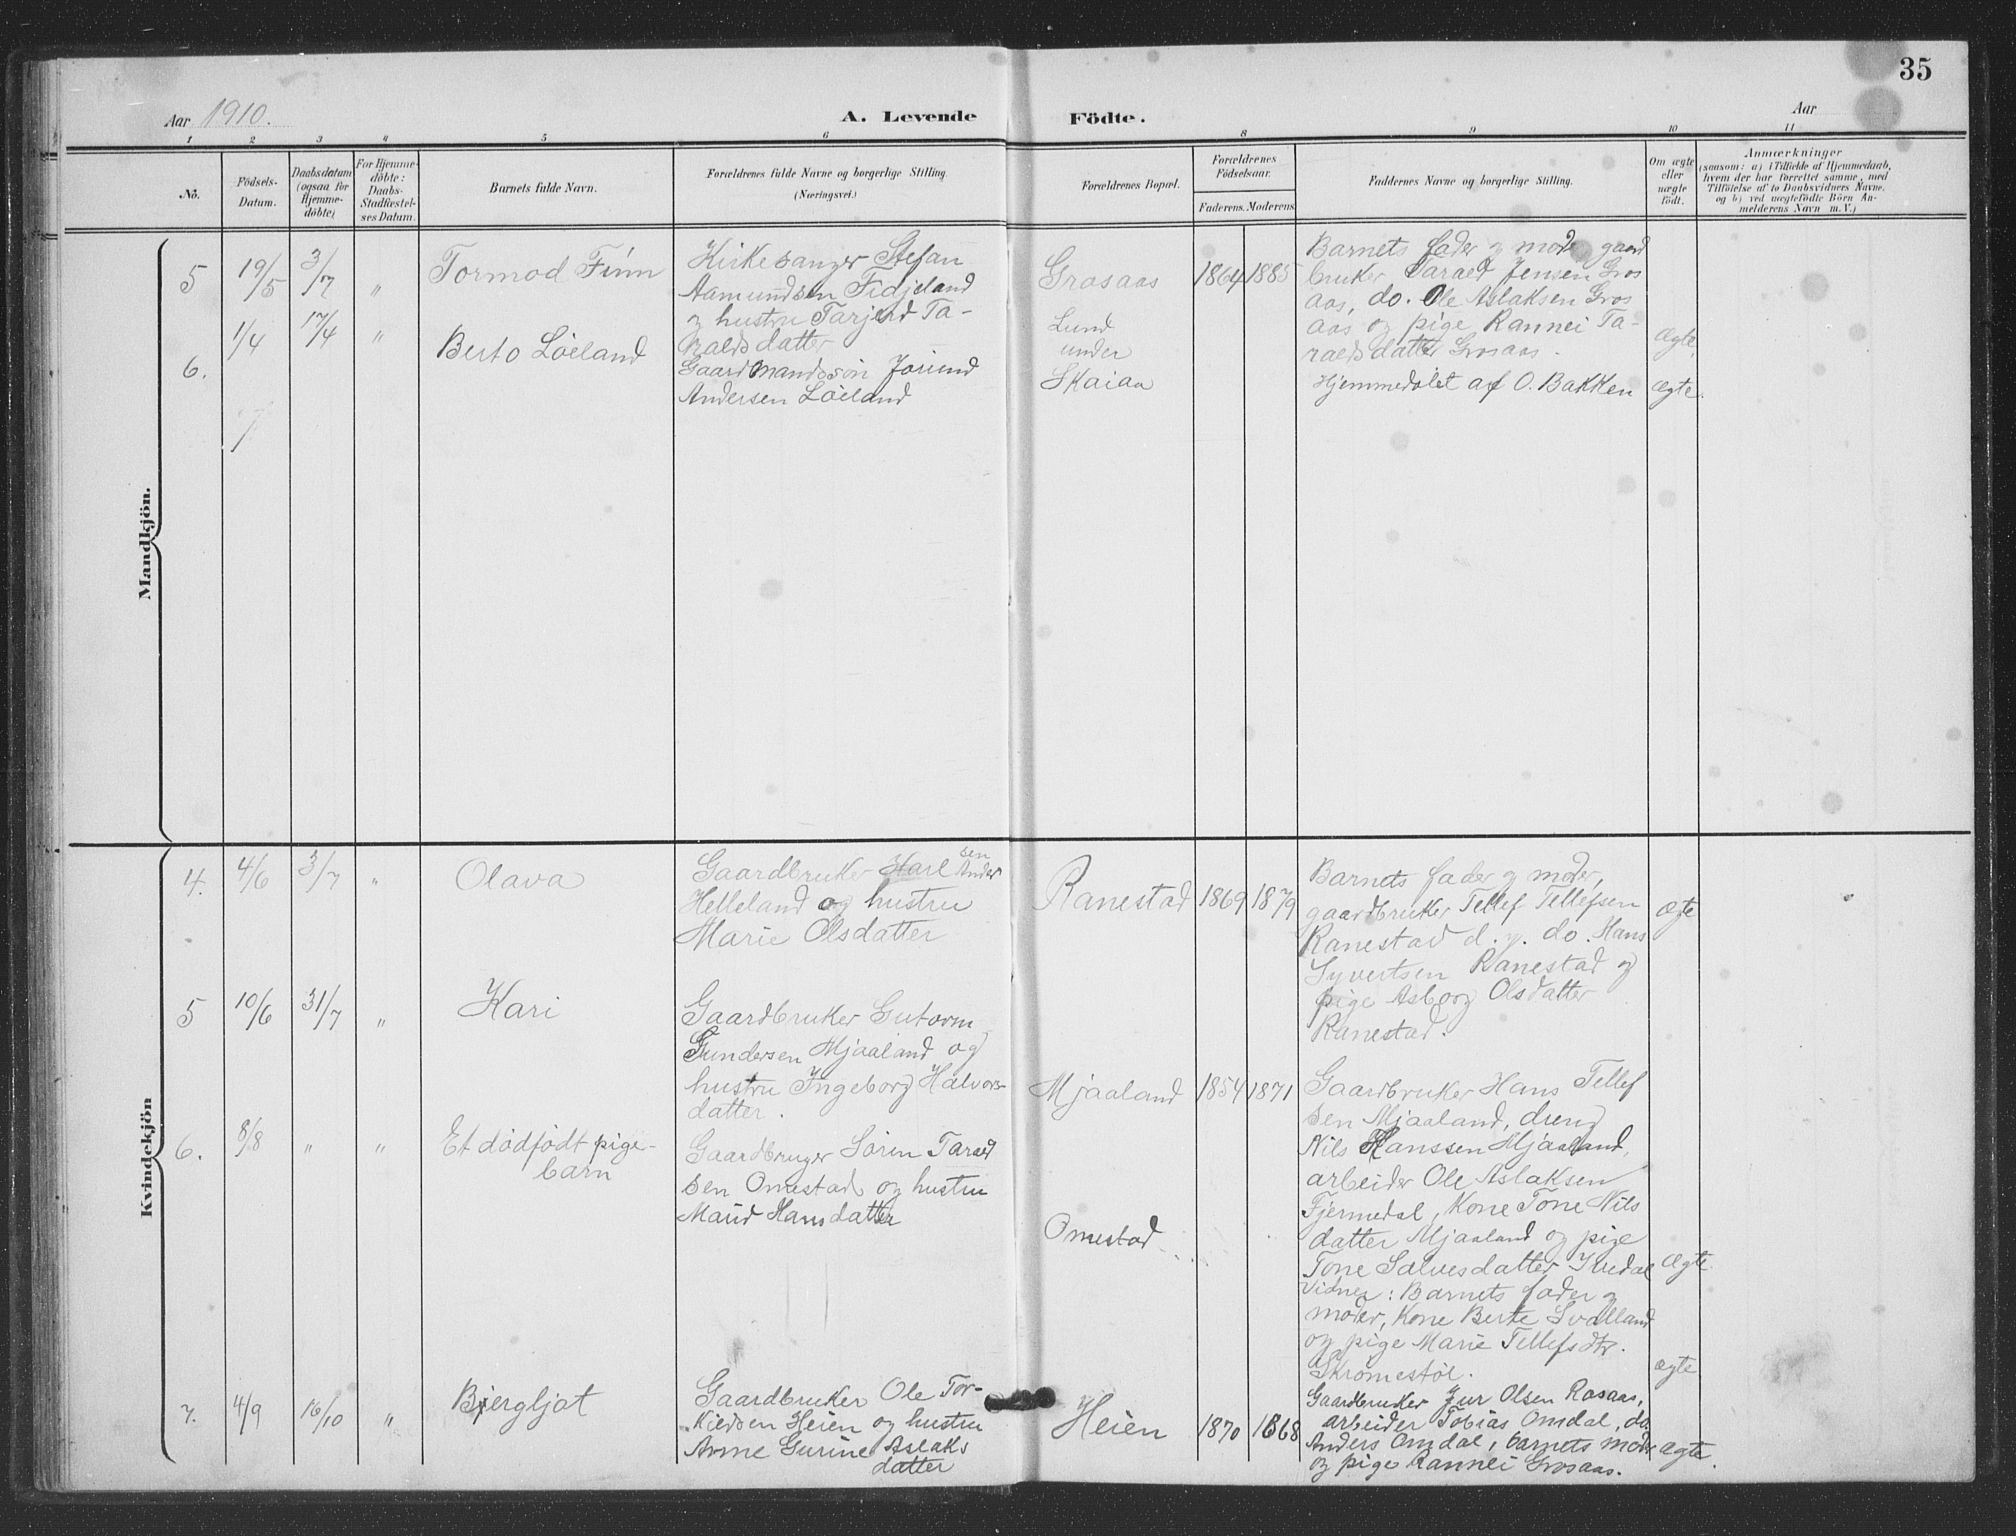 35
Aar 1910.
A. Levende Födte.
Aar
1 2 3 4 5 6 8 9 10 11
No.
Födsels-Datum.
Daabsdatum (ogsaa for Hjemme-döbte)
For Hjemme-döbte: Daabs-Stadfæstelses Datum.
Barnets fulde Navn.
Forældrenes fulde Navne og borgerlige Stilling
(Næringsvei.)
Forældrenes Bopæl.
Forældrenes Födselsaar.
Faderens. Moderens.
Faddernes Navne og borgerlige Stilling.
Om ægte eller uægte födt.
Anmærkninger
(saasom: a) i Tilfælde af Hjemmedaab,
hvem der har forrettet samme, med
Tilföielse af to Daabsvidners Navne,
og b) ved uægtefödte Börn An-
melderens Navn m. V.)
Mandkjön.
5 19/5 3/7 " Tormod Finn
Kirkesanger Stefan
Aamundsen Fidjeland
og hustru Tarjerd Ta-
raldsdatter
Grosaas 1864 1885
Barnets fader og moder, gaard
bruker Tarald Jensen Gros
aas, do. Ole Aslaksen Gros
aas og pige Rannei Ta-
raldsdatter Grosaas.
ægte.
6. 1/4 17/4 " Berto Löeland
Gaardmandssön Jörund
Andersen Löeland
Lund
under
Skaiaa
Hjemmedöbt af O. Bakken
ægte.
Kvindekjön
4. 4/6 3/7 " Olava
Gaardbruker Karl Ander
sen
Helleland og hustru
Marie Olsdatter
Ranestad 1869 1879
Barnets fader og moder,
gaardbruker Tellef Tellefsen
Ranestad d. y. do. Hans
Syvertsen Ranestad og
pige Asborg Olsdatter
Ranestad.
ægte
5 10/6 31/7 " Kari
Gaardbruker Gutorm
Gundersen Mjaaland og
hustru Ingeborg Halvors-
datter.
Mjaaland 1854 1871
Gaardbruker Hans Tellef
sen Mjaaland, dreng
Nils Hanssen Mjaaland,
arbeider Ole Aslaksen
Fjermedal, Kone Tone Nils
datter Mjaaland og pige
Tone Salvesdatter Kvedal
ægte.
6. 8/8 " " Et dödfödt pige-
barn
Gaardbruger Sören Tarald
sen Omestad og hustru
Maud Hansdatter
Omestad
Vidner: Barnets fader og
moder, Kone Berte Svalland
og pige Marie Tellefsdtr.
Skromestöl.
ægte
7. 4/9 16/10 " Bjergljot
Gaardbruker Ole Tor-
kildsen Heien og hustru
Anne Gurine Aslaks
datter
Heien 1870 1868
Gaardbruker Jur Olsen Rosaas,
arbeider Tobias Omdal, do.
Anders Omdal, barnets moder
og pige Rannei Grosaas.
ægte.